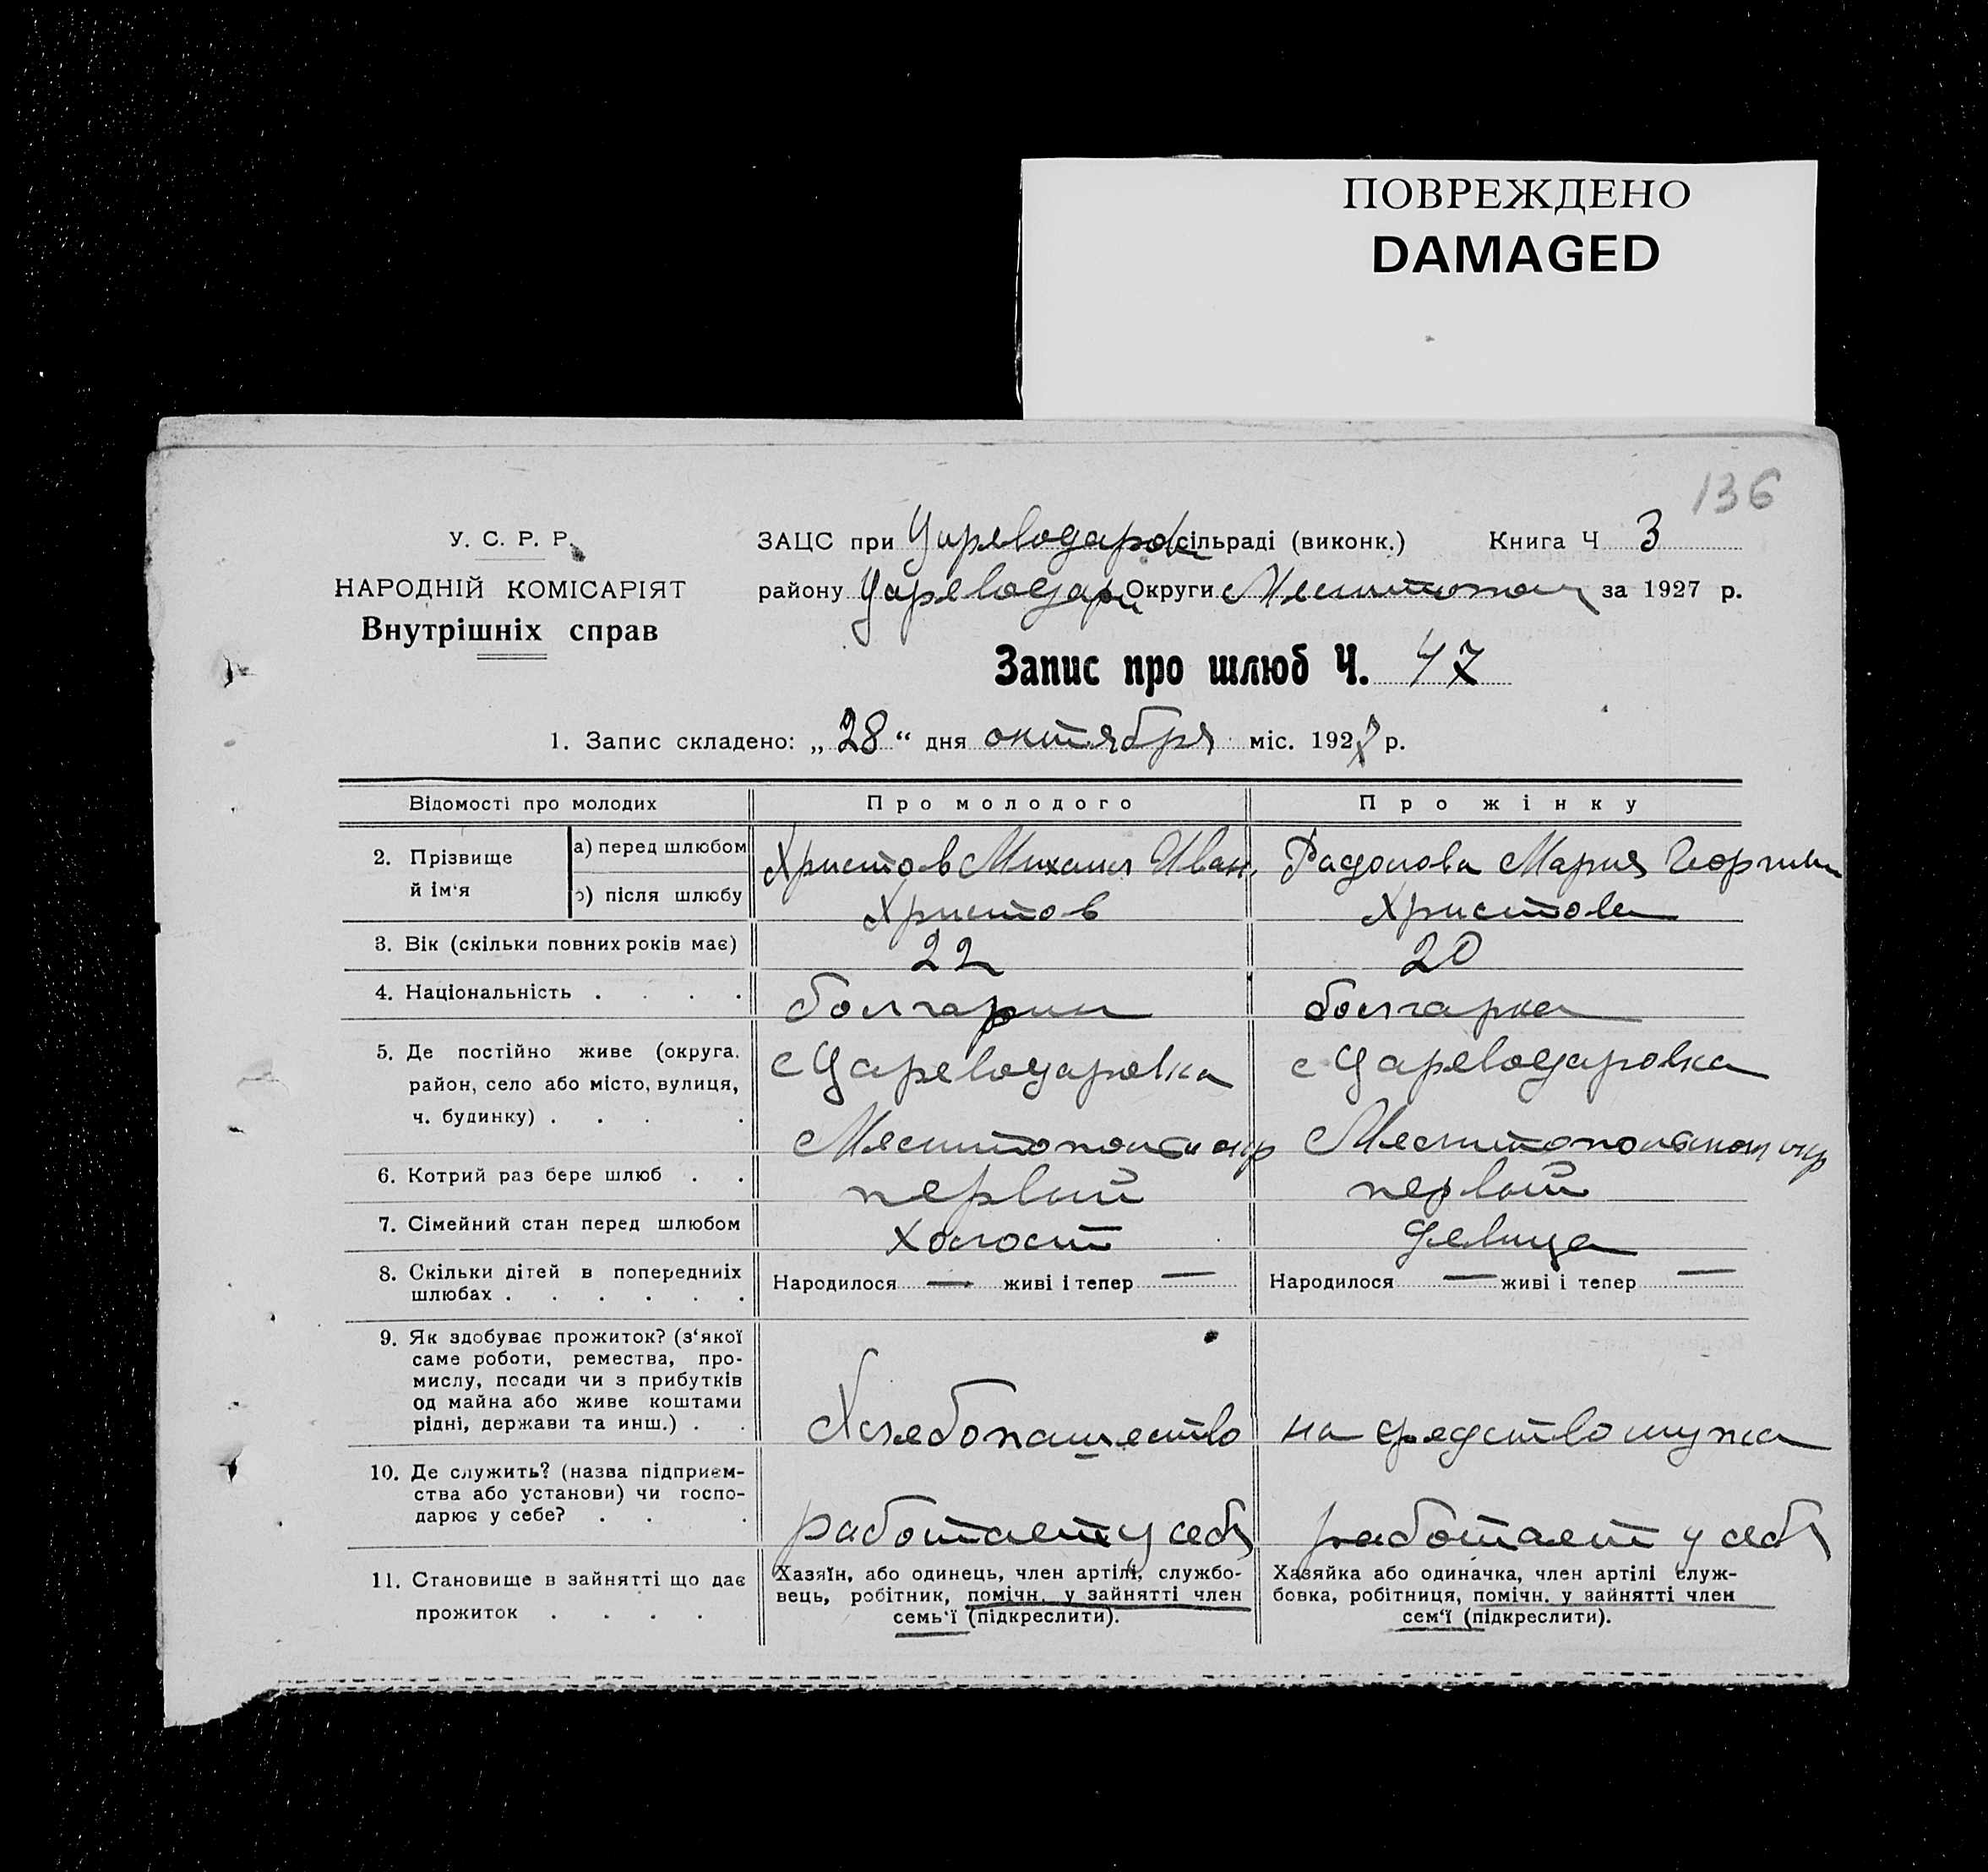 ПОВРЕЖДЕНО
DAMAGED
136
У. С. Р. Р.
НАРОДНІЙ КОМІСАРІЯТ
Внутрішніх справ
ЗАЦС при Цареводаров сільраді (виконк.) Книга Ч 3
району Цареводаров Округи Мелитопол за 1927 р.
Запис про шлюб Ч. 47
1. Запис складено: „28“ дня октября міс. 1927 р.
Відомості про молодих Про молодого Про жінку
2. Прізвище й ім‘я
а) перед шлюбом Христов Михаил Иван. Радолова Мария Георгиев
б) після шлюбу Христов Христова
3. Вік (скільки повних років має) 22 20
4. Національність . . . . болгарин болгарка
5. Де постійно живе (округа,
район, село або місто, вулиця,
ч. будинку) . . . .
с Цареводаровка
Мелитопольск окр
с Цареводаровка
Мелитопольской окр
6. Котрий раз бере шлюб . . первый первый
7. Сімейний стан перед шлюбом холост девица
8. Скільки дітей в попередниіх
шлюбах . . . . . .
Народилося — живі і тепер —
Народилося — живі і тепер —
9. Як здобуває прожиток? (з‘якої
саме роботи, ремества, про-
мислу, посади чи з прибутків
од майна або живе коштами
рідні, держави та инш.) . .
Хлебопашество
на средство мужа
10. Де служить? (назва підприєм-
ства або установи) чи госпо-
дарює у себе? . . .
работает у себя
работает у себя
11. Становище в зайнятті що дає
прожиток . . . .
Хазяїн, або одинець, член артілі, службо-
вець, робітник, помічн. у зайнятті член
семь‘ї (підкреслити).
Хазяйка або одиначка, член артілі служ-
бовка, робітниця, помічн. у зайнятті член
сем‘ї (підкреслити).